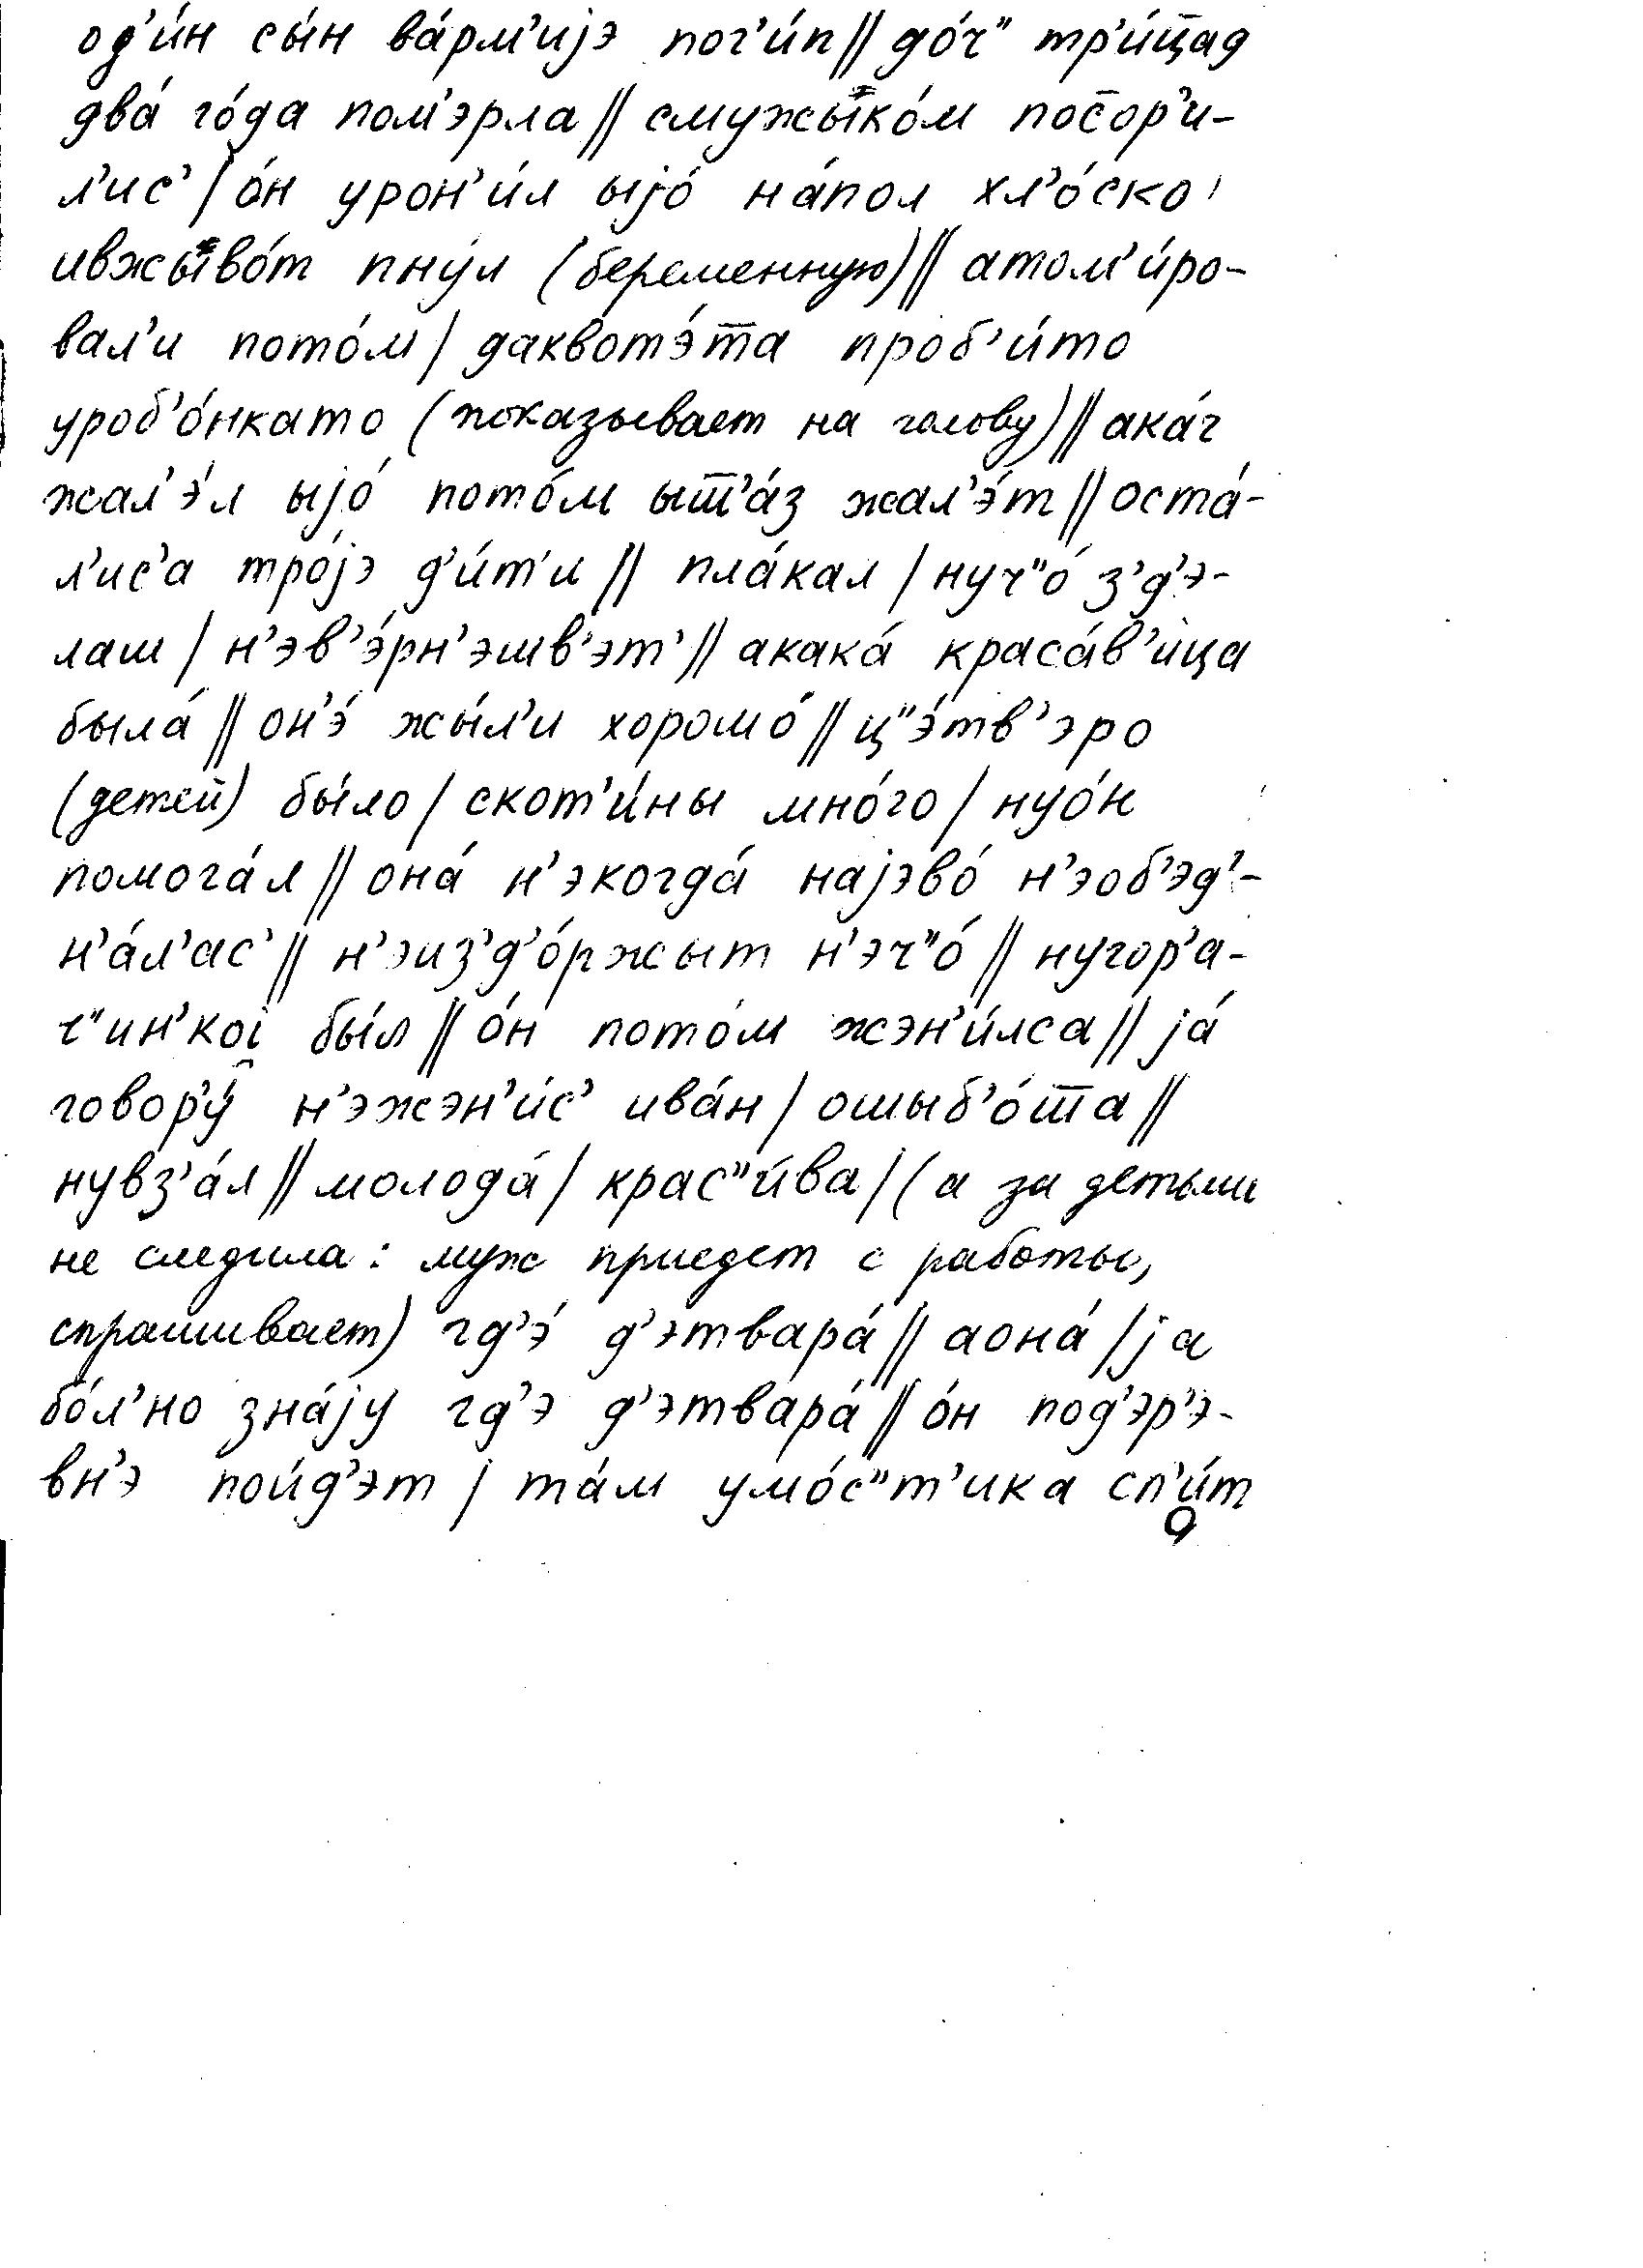 од’и́н сы́н ва́рм’иjэ пог’и́п || до́ч" тр’и́ц̄ад
два́ го́да пом’эрла || смужыко́м пос̄ор’и-
л’ис’ / о́н урон’и́л ыjо́ на́пол хл’о́ско
ивжыво́т пну́л (беременную) || атом’и́ро-
вал’и пото́м / даквотэ́т̄а проб’и́то
уроб’о́нкато (показывает на голову) || ака́г
жал’э́л ыjо́ пото́м ыт̄’а́з жал’э́т || оста́-
л’ис’а тро́jэ д’и́т’и || пла́кал / нуч"о́ з’д’э-
лаш / н’эв’э́рн’эшв’эт’ || акака́ краса́в’ица
была́ || он’э́ жы́л’и хорошо́ || ц"э́тв’эро
(детей) бы́ло / скот’и́ны мно́го / нуо́н
помога́л || она́ н’экогда́ наjэво́ н’эоб’эд’-
н’а́л’ас’ || н’эиз’д’о́ржыт н’эч"о́ || нугор’а-
ч"ин’коi̯ бы́л || о́н пото́м жэн’и́лса || jа́
говор’у́ н’эжэн’и́с’ ива́н / ошыб’о́т̄а ||
нувз’а́л || молода́ / крас"и́ва / (а за детьми
не следила: муж приедет с работы,
спрашивает) гд’э́ д’этвара́ || аона́ / jа
бо́л’но зна́jу гд’э д’этвара́ || о́н под’эр’э-
вн’э пойд’эт / та́м умо́с"т’ика сп’и́т
9